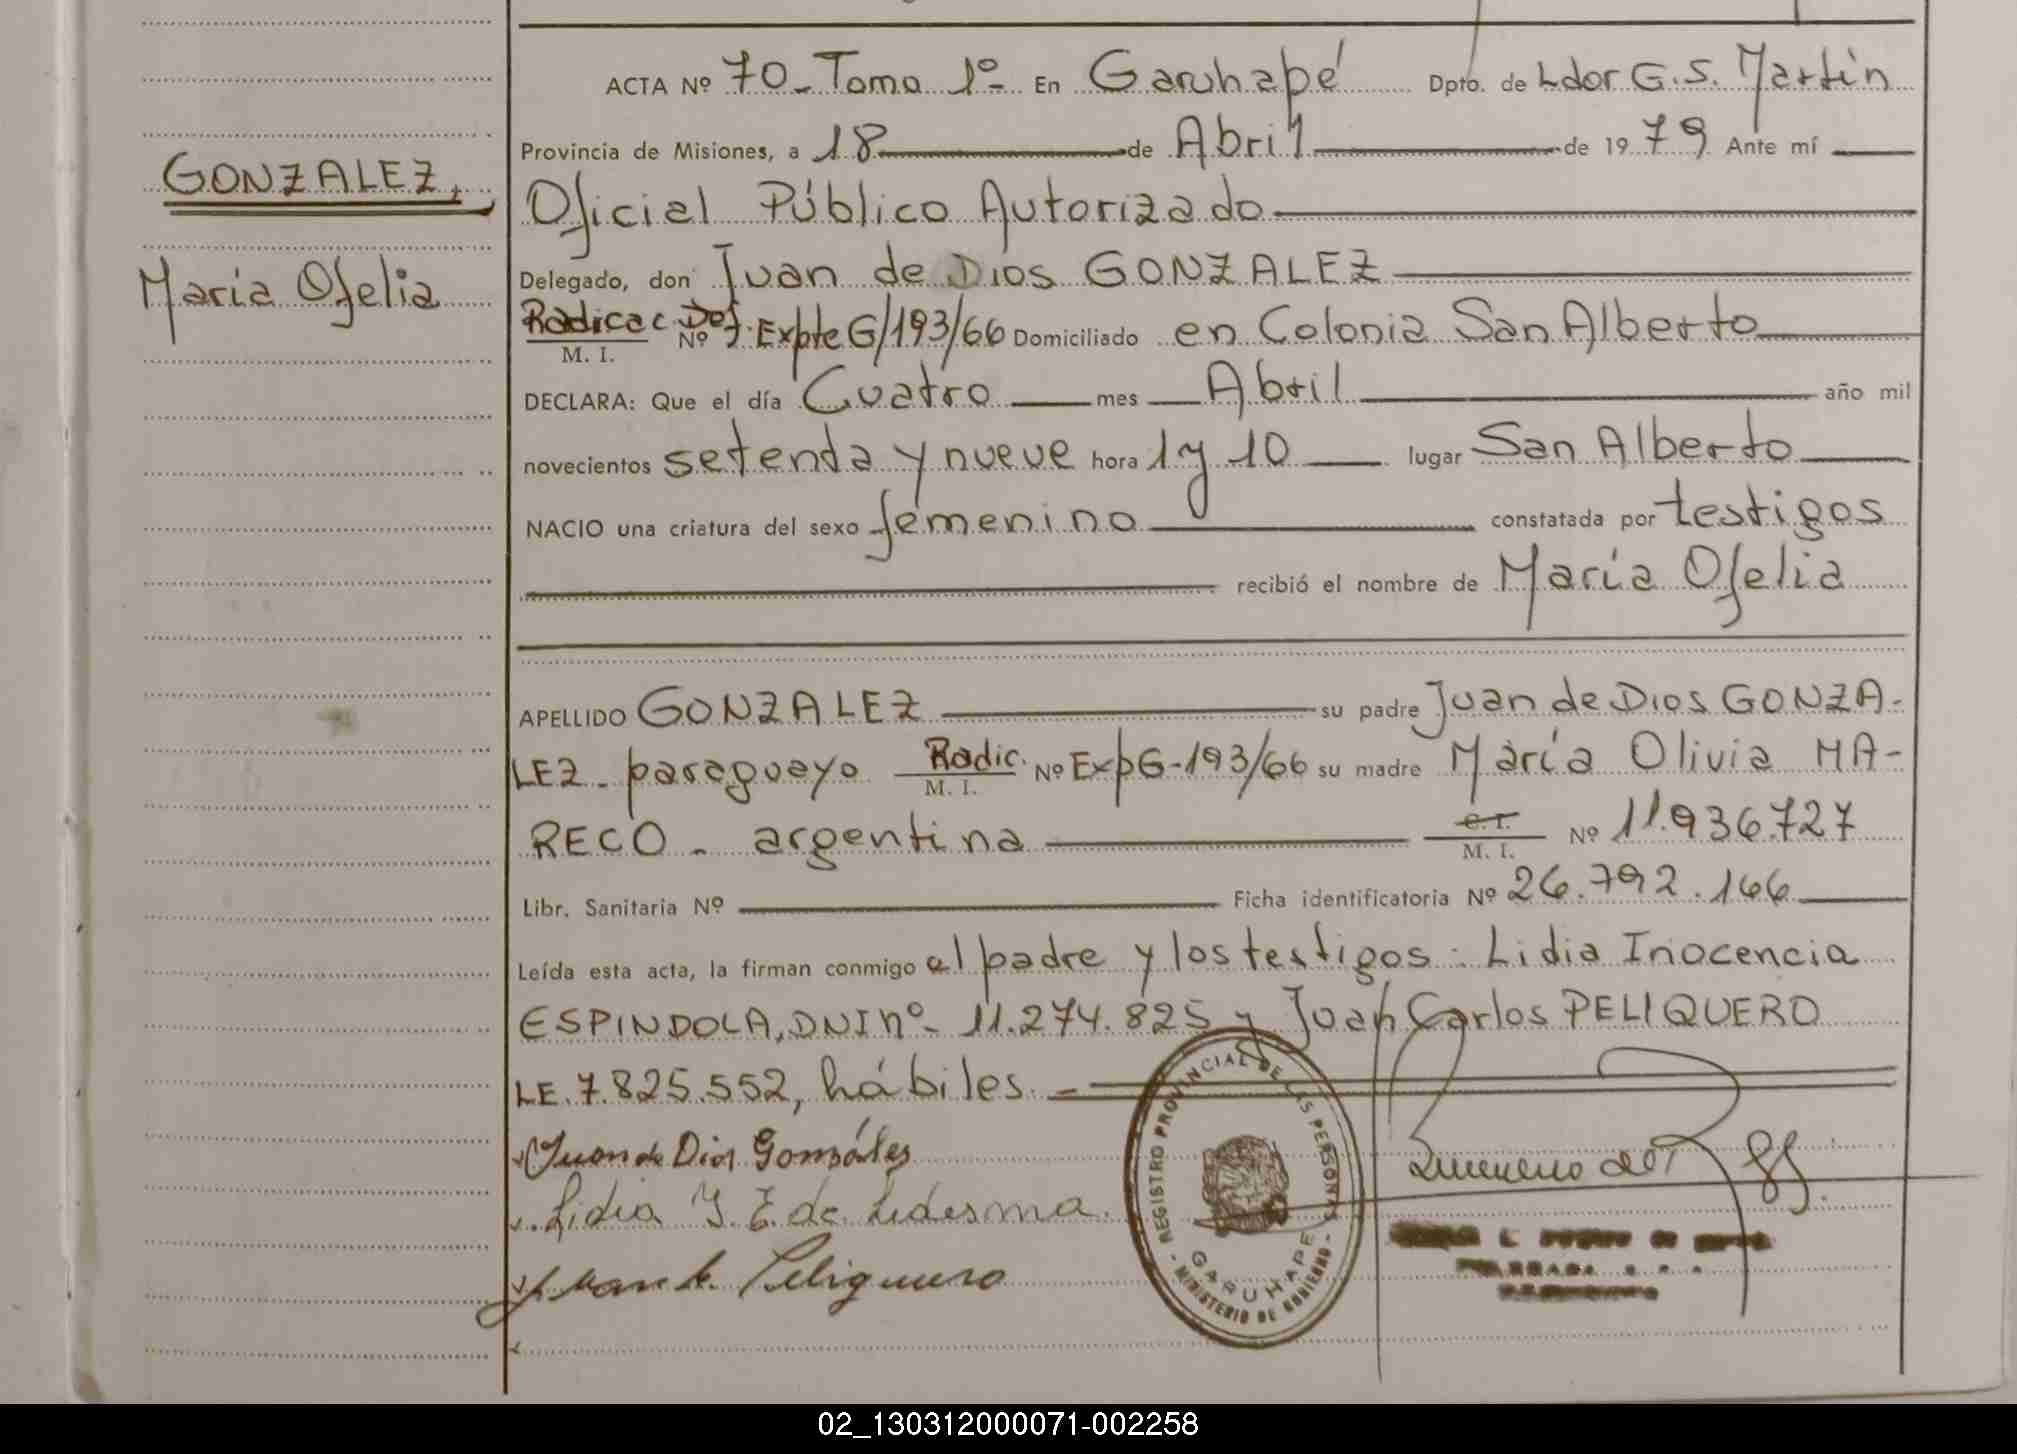 GONZALEZ,
María Ofelia
ACTA Nº 70 - Tomo 1º - En Garuhapé Dpto. de Ldor G. S. Martín
Provincia de Misiones, a 18 de Abril de 1979 Ante mí
Oficial Público Autorizado
Delegado, don Juan de Dios GONZALEZ
Radicac. Def. M. I. Nº Expte G/193/66 Domiciliado en Colonia San Alberto
DECLARA: Que el día Cuatro mes Abril año mil
novecientos setenta y nueve hora 1 y 10 lugar San Alberto
NACIO una criatura del sexo femenino constatada por testigos
recibió el nombre de María Ofelia
APELLIDO GONZALEZ su padre Juan de Dios GONZA-
LEZ - paraguayo Radic. M. I. Nº Exp G-193/66 su madre María Olivia MA-
RECO - argentina M. I. Nº 11.936.727
Libr. Sanitaria Nº Ficha identificatoria Nº 26.792.166
Leída esta acta, la firman conmigo el padre y los testigos: Lidia Inocencia
ESPINDOLA, DNI nº - 11.274.825 y Juan Carlos PELIQUERO
LE. 7.825.552, hábiles. -
Juan de Dios Gonzáles
Lidia I. E. de Ledesma.
Juan C. Peliquero
REGISTRO PROVINCIAL DE LAS PERSONAS
GARUHAPE
- MINISTERIO DE GOBIERNO -
02_130312000071-002258